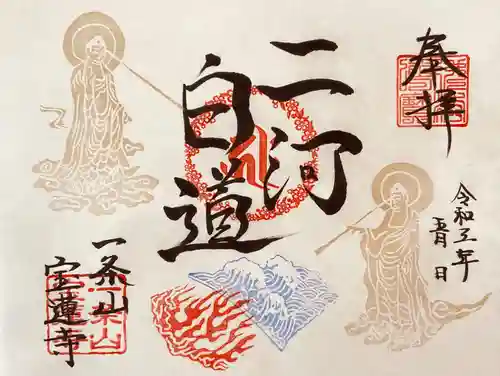 奉拝
二河
白道
令和五年
日
一条山
宝蓮寺